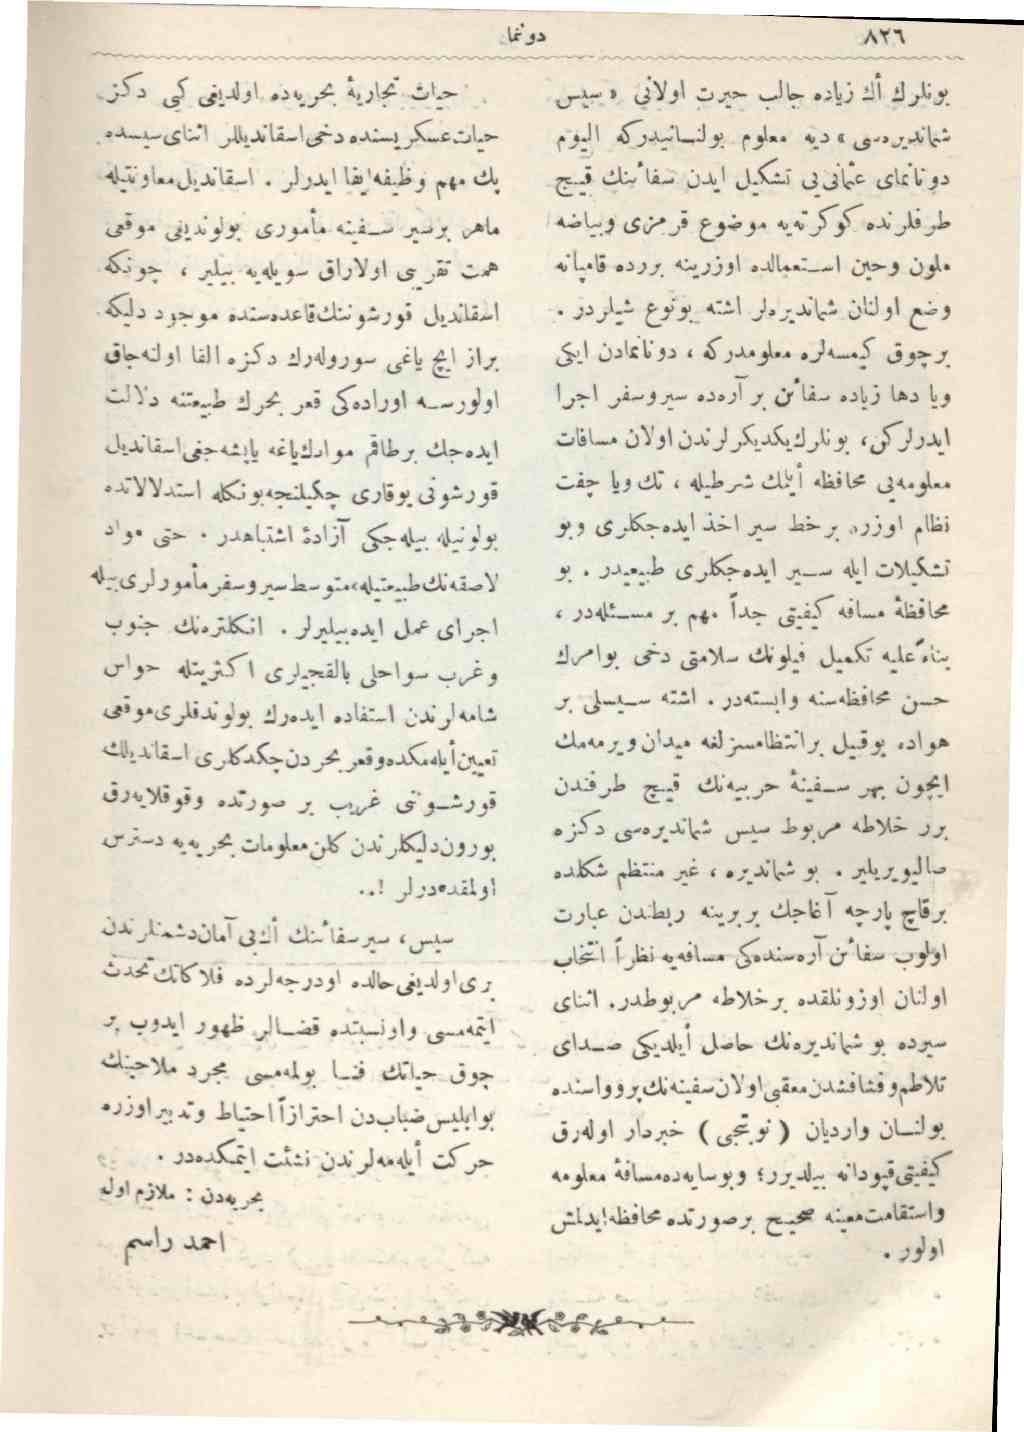 ٨٢٦
دوننما
بونلرك أك زیاده جالب حیرت اولانی « سیس
شماندیره‌سی » دیه معلوم بولنـانیدرکه الیوم
دونانمای عثمانی‌یی تشکیل ایدن سفائنك قیـچ
طرفلرنده کوکرته‌یه موضوع قرمزی وبیاضه
ملون وحین اسـتعمالده اوزرینه برر‌ده قامپانه
وضع اولنان شماندیره‌لر اشته بونوع شیلردر .
برچوق کیمسه‌لره معلومدرکه ، دونانمادن ایکی
ویا دها زیاده سفائن بر آره‌ده سیروسفر اجرا
ایدرلرکن، بونلرك یکدیکرلرندن اولان مسافات
معلومه‌یی محافظه أیلمك شرطیله ، تك ویا چفت
نظام اوزره برخط سیر اخذ ایده‌جکلری وبو
تشکیلات ایله سـیر ایده‌جکلری طبیعیدر . بو
محافظهٔ مسافه کیفیتی جداً مهم بر مسـئله‌در ،
بناءً علیه تکمیل فیلونك سلامتی دخی بوامرك
حسن محافظه‌سنه وابسته‌در . اشته سـیسلی بر
هواده بوقبیل برانتظامسزلغه میدان ویرمه‌مك
ایچون بهر سـفینهٔ حربیه‌نك قیـچ طرفندن
برر خلاطه مربوط سیس شماندیره‌سی دکزه
صالیویریلیر . بو شماندیره ، غیر منتظم شکلده
برقاچ پارچه آغاجك بربرینه ربطندن عبارت
اولوب سفائن آره‌سنده‌کی مسافه‌یه نظراً انتخاب
اولنان اوزونلقده برخلاطه مربوطدر. اثنای
سیرده بو شماندیره‌نك حاصل أیلدیکی صـدای
تلاطم وفشافشدن معقبی اولان سفینه‌نك پروواسنده
بولنـان واردیان ( نوبتجی ) خبردار اوله‌رق
کیفیتی قپودانه بیلدیرر؛ وبوسایه‌ده مسافهٔ معلومه
واستقامت معینه صحیـح برصورتده محافظه ایدلمش
اولور .
حیات تجاریهٔ بحریه‌ده اولدیغی کبی دکز
حیات عسکریسنده دخی اسقاندیللر اثنای سیسده
پك مهم وظیفه ایفا ایدرلر . اسقاندیل معاونتیله
ماهر برسیر سـفینه مأموری بولوندیغی موقعی
همت تقریبی اولاراق سویله‌یه بیلیر ، چونکه
اسقاندیل قورشوننك قاعده‌سنده موجود دلیکه
براز ایچ یاغی سوروله‌رك دکزه القا اولنه‌جاق
اولورسـه اوراده‌کی قعر بحرك طبیعتنه دلالت
ایده‌جك برطاقم موادك یاغه یاپشه‌جغی اسقاندیل
قورشونی یوقاری چکیلنجه بونکله استدلالاتده
بولونیله بیله‌جکی آزادهٔ اشتباهدر . حتی مواد
لاصقه‌نك طبیعتیله، متوسط سیروسفر مأمورلری بیله
اجرای عمل ایده‌بیلیرلر . انکلتره‌نك جنوب
وغرب سواحلی بالقجیلری اکثریتله حواس
شامه‌لرندن استفاده ایده‌رك بولوندقلری موقعی
تعیین أیله‌مکده وقعر بحردن چکدکلری اسقاندیلك
قورشـوننی غریب بر صورتده وقوقلایه‌رق
بورون دلیکلرندن کلن معلومات بحریه‌یه دسترس
اولمقده‌درلر !..
سیس، سیر سفائنك أك بی آمان دشمنلرندن
بری اولدیغی حالده اودرجه‌لرده فلاکاتك تحدث
ایتمه‌مسی واونسبتده قضـالر ظهور ایدوب بر
چوق حیاتك فنـا بولمه‌مسی مجرد ملاحینك
بوابلیس ضبابدن احترازاً احتیاط وتدبیر اوزره
حرکت أیله‌مه‌لرندن نشئت ایتمکده‌در .
بحریه‌دن : ملازم اول
احمد راسم